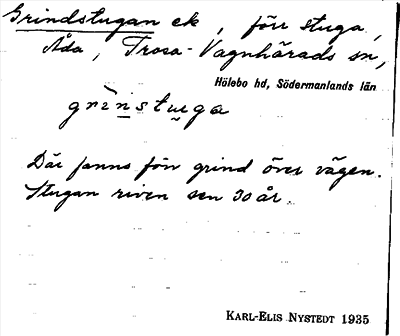 Grindstugan ek, förr stuga,
Åda, Trosa-Vagnhärads sn,
Hölebo hd, Södermanlands län
grìnstuga
Där fanns förr grind över vägen.
Stugan riven sen 30 år.
KARL-ELIS NYSTEDT 1935